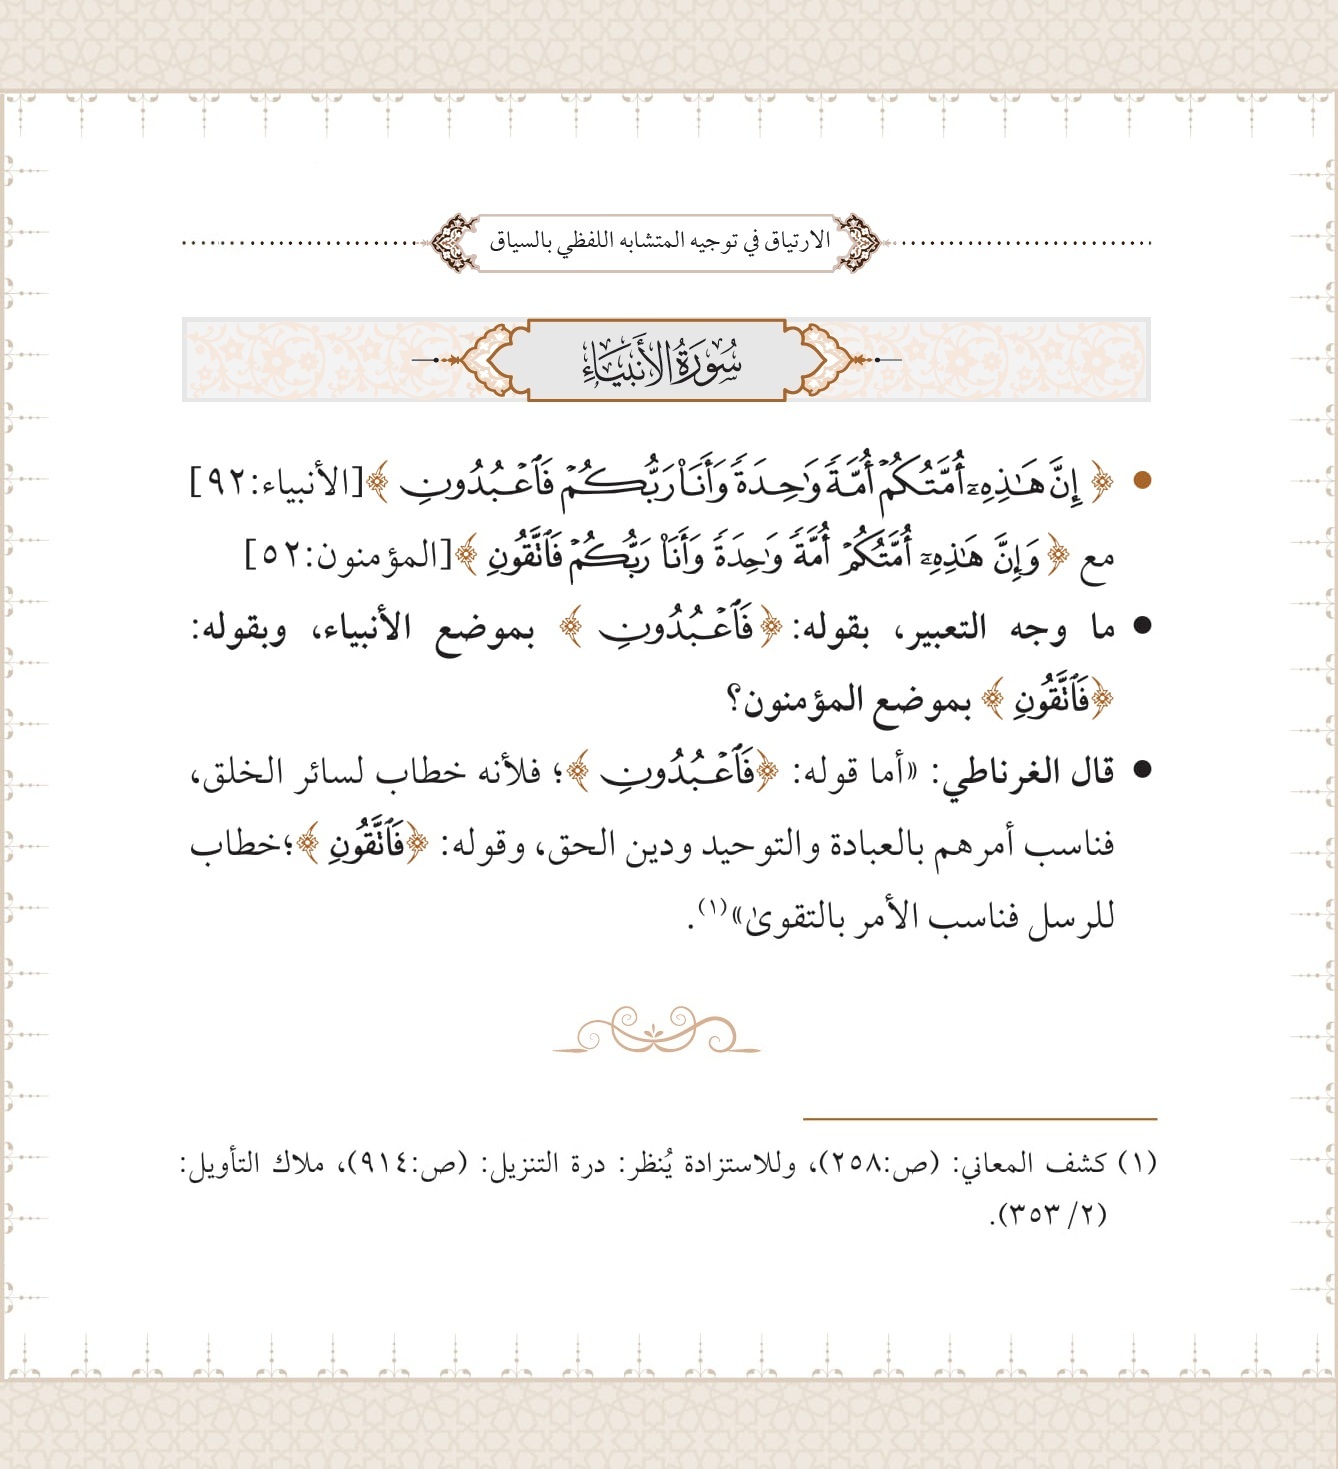 الارتياق في توجيه المتشابه اللفظي بالسياق
سُورَةُ الأَنبِيَاءِ
• ﴿ إِنَّ هَٰذِهِۦٓ أُمَّتُكُمۡ أُمَّةٗ وَٰحِدَةٗ وَأَنَا۠ رَبُّكُمۡ فَٱعۡبُدُونِ ﴾ [الأنبياء:٩٢]
مع ﴿ وَإِنَّ هَٰذِهِۦٓ أُمَّتُكُمۡ أُمَّةٗ وَٰحِدَةٗ وَأَنَا۠ رَبُّكُمۡ فَٱتَّقُونِ ﴾ [المؤمنون:٥٢]
• ما وجه التعبير، بقوله: ﴿فَٱعۡبُدُونِ ﴾ بموضع الأنبياء، وبقوله:
﴿فَٱتَّقُونِ ﴾ بموضع المؤمنون؟
• قال الغرناطي: «أما قوله: ﴿فَٱعۡبُدُونِ ﴾؛ فلأنه خطاب لسائر الخلق،
فناسب أمرهم بالعبادة والتوحيد ودين الحق، وقوله: ﴿فَٱتَّقُونِ ﴾؛خطاب
للرسل فناسب الأمر بالتقوىٰ»(١).
(١) كشف المعاني: (ص:٢٥٨)، وللاستزادة يُنظر: درة التنزيل: (ص:٩١٤)، ملاك التأويل:
(٢/ ٣٥٣).